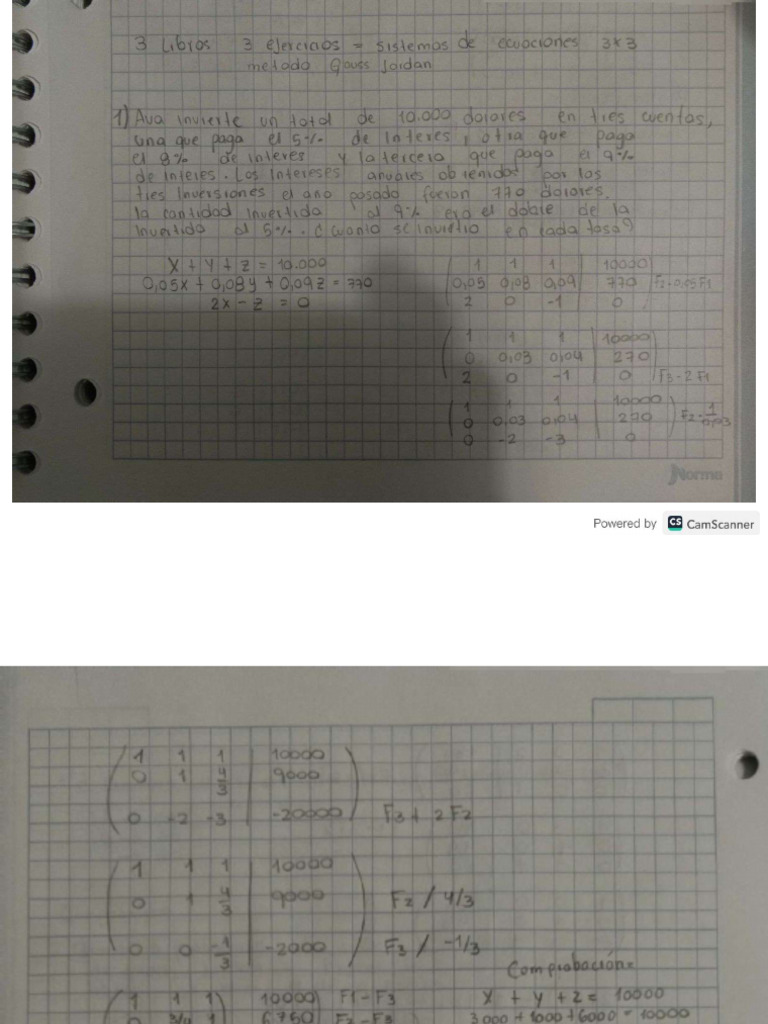 3 Libros 3 Ejercicios = sistemas de ecuaciones 3x3
metodo Gauss Jordan
1) Ava invierte un total de 10.000 dolores en tres cuentas,
una que paga el 5% de interes, otra que paga
el 8% de interes y la tercera que paga el 9%
de interes. Los intereses anuales obtenidos por las
tres inversiones el año pasado fueron 770 dolores.
la cantidad invertida al 9% era el doble de la
invertida al 5%. ¿cuanto se invirtio en cada tasa?
x + y + z = 10.000
0,05x + 0,08y + 0,09z = 770
2x - z = 0
1 1 1 10000
0,05 0,08 0,09 770 F2-0,05F1
2 0 -1 0
1 1 1 10000
0 0,03 0,04 270
2 0 -1 0 F3-2F1
1 1 1 10000
0 0,03 0,04 270 F2·1/0,03
0 -2 -3 0
Norma
Powered by CS CamScanner
1 1 1 10000
0 1 4/3 9000
0 -2 -3 -20000 F3 + 2F2
1 1 1 10000
0 1 4/3 9000 F2 / 4/3
0 0 -1/3 -2000 F3 / -1/3
Comprobación=
1 1 1 10000 F1-F3
x + y + z = 10000
0 3/4 1 6750 F2-F3
3000+1000+6000 = 10000